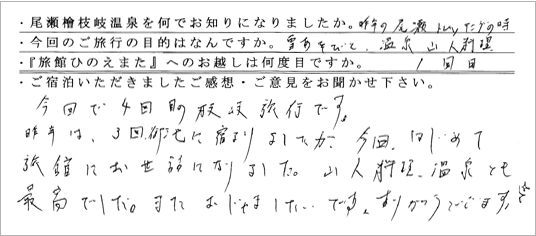 ・尾瀬檜枝岐温泉を何でお知りになりましたか。昨年の尾瀬 の時
・今回のご旅行の目的はなんですか。雪あそびと、温泉 山人料理
・『旅館ひのえまた』へのお越しは何度目ですか。 1回目
・ご宿泊いただきましたご感想・ご意見をお聞かせ下さい。
今回で4回目の 旅行です。
昨年は、3回 に宿りましたが、今回、はじめて
旅館にお世話になりました。山人料理、温泉とも
最高でした。また おじゃましたいです。ありがとうございます。